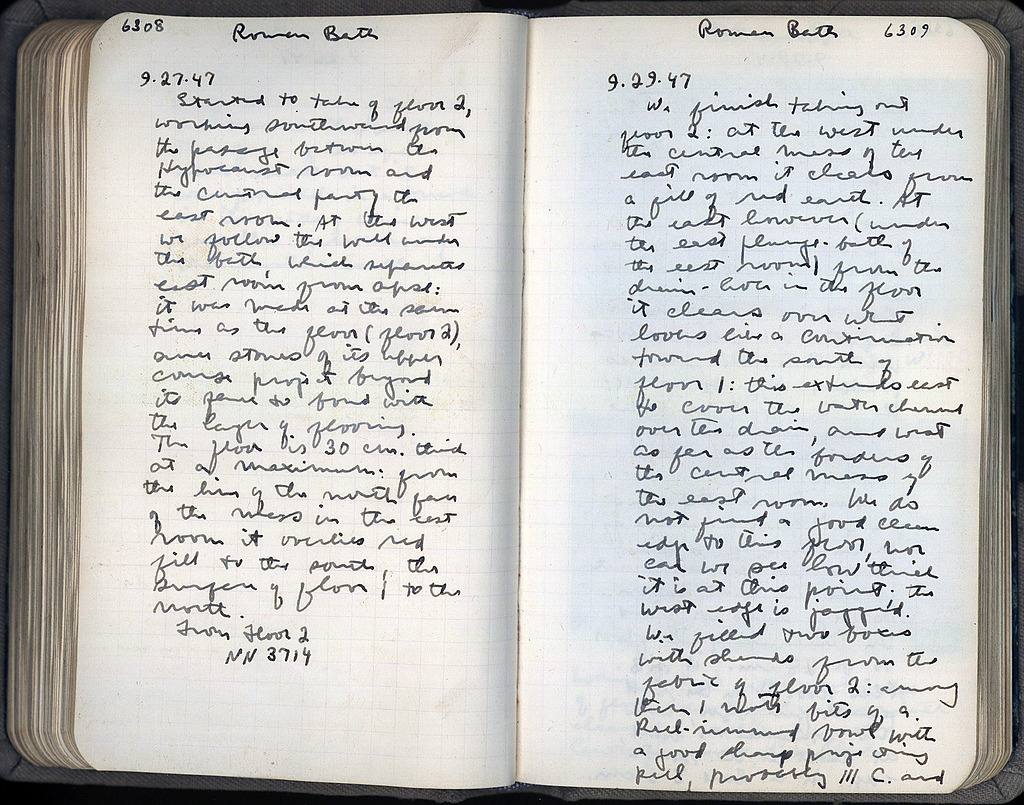 6308
Roman Bath
9.27.47
Started to take up floor 2,
working southward from
the passage between the
Hypocaust room and
the central part of the
east room. At the west
we follow the wall under
the bath, which separates
east room from apse:
it was made at the same
time as the floor (floor 2),
since stones of its upper
course project beyond
its face to bond with
the layer of flooring.
The floor is 30 cm. thick
at a maximum: from
the line of the north face
of the mass in the east
room it overlies red
fill to the south, the
surface of floor 1 to the
north.
From Floor 2
NN 3714
Roman Bath
6309
9.29.47
We finish taking out
floor 2: at the west under
the central mass of the
east room it clears from
a fill of red earth. At
the east however (under
the east plunge-bath of
the east room) from the
drain-hole in the floor
it clears over what
looks like a continuation
toward the south of
floor 1: this extends east
to cover the water channel
over the drain, and west
as far as the borders of
the central mass of
the east room. We do
not find a good clean
edge to this floor, nor
can we see how thick
it is at this point. The
west edge is jagged.
We filled two boxes
with sherds from the
fabric of floor 2: among
them I note bits of a
Keel-rimmed bowl with
a good sharp projecting
keel, probably III C. and